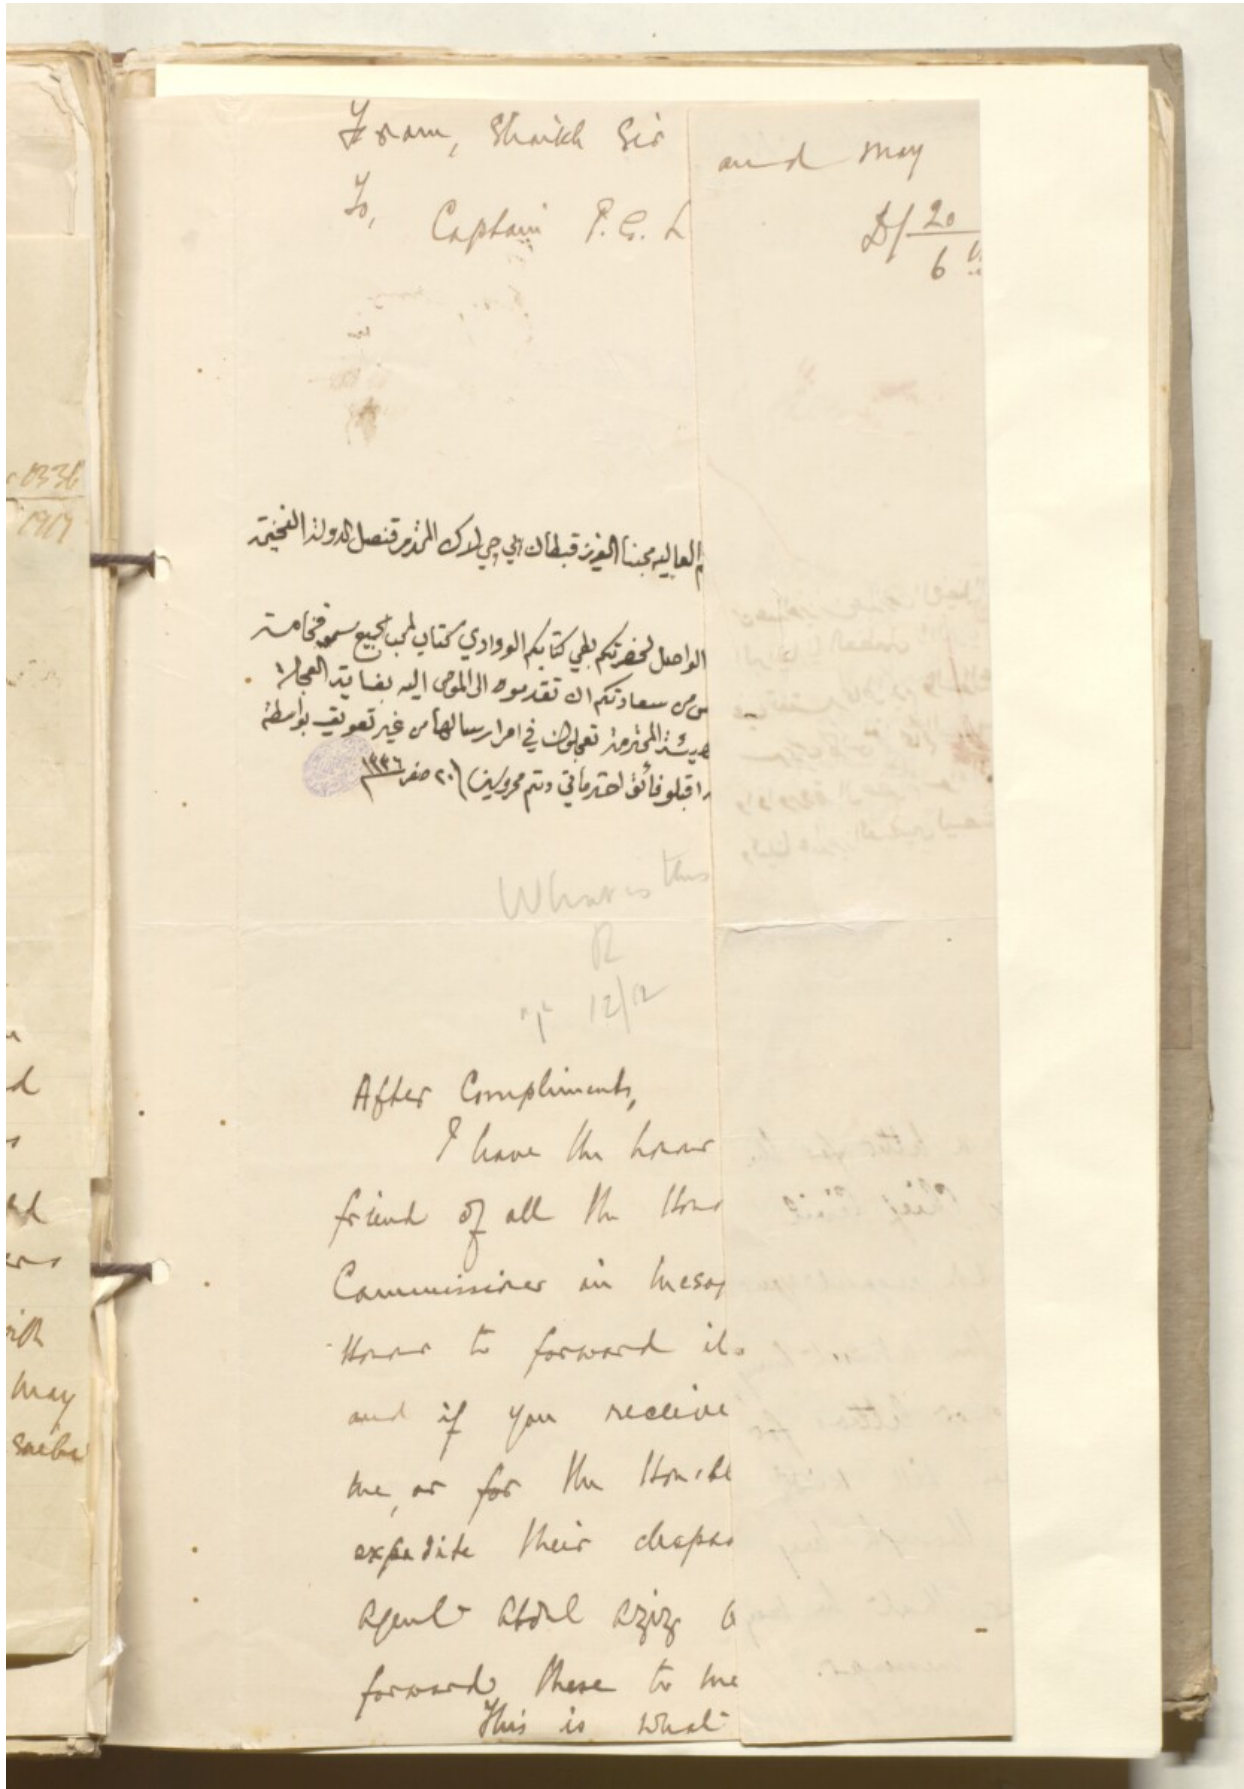 From, Shaikh Sir
To,
Captain P. G. L
and may
D/ 20
6
العاليه محبنا العزيز قبطان پي جي لاك المحترم قنصل الدولة الفخيمة
الواصل لحضرتكم بطي كتابكم الودادي كتاب لمحب الجميع سمو فخامة
من سعادتكم ان تقدموه الى المومى اليه بغاية العجاله
المحترمة تعجلون في امر ارسالها من غير تعويق بواسطة
اقبلو فائق احترماتي ودتم محروسين ٢٠ صفر ١٣٣٦
What is this
R
12/12
After Compliments,
I have the honour
friend of all the Hono
Commissioner in Mesop
Honour to forward it
and if you receive
me, or for the Honble
expedite their despa
Agent Abdul Aziz
forward these to me
This is what
1336
1917
d
may